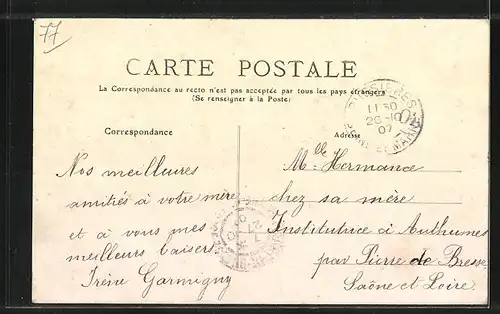 77
CARTE POSTALE
La Correspondance au recto n'est pas acceptée par tous les pays étrangers
(Se renseigner à la Poste)
11 30
26-10
07
Correspondance
Adresse
Nos meilleures
amitiés à votre mère
et à vous mes
meilleurs baisers
Irène Garmigny
Mlle Hermance
chez sa mère
Institutrice à Authumes
par Pierre de Bresse
Saône et Loire